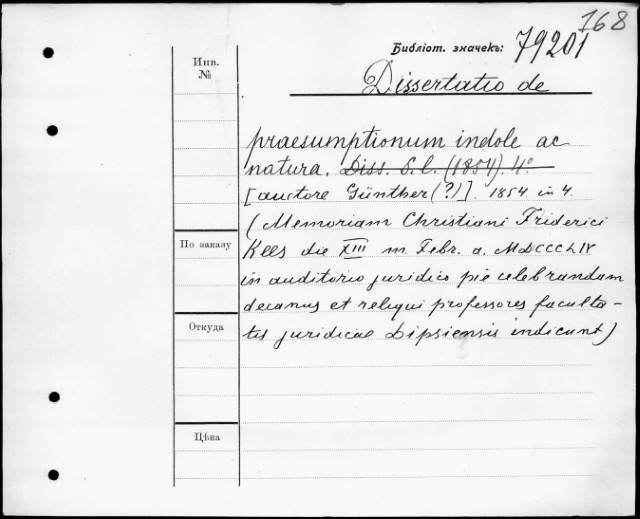 168
Библіот. значекъ: 79201
Инв.
№
Dissertatio de
praesumptionum indole ac
natura. Diss. S. l. (1854). 4°
[auctore Günther (?)]. 1854 in 4.
(Memoriam Christiani Friderici
Kees die XIII m. Febr. a. MDCCCLIV
По заказу
in auditorio juridico pie celebrandam
decanus et reliqui professores faculta-
Откуда
tis juridicae Lipsiensis indicunt)
Цѣна